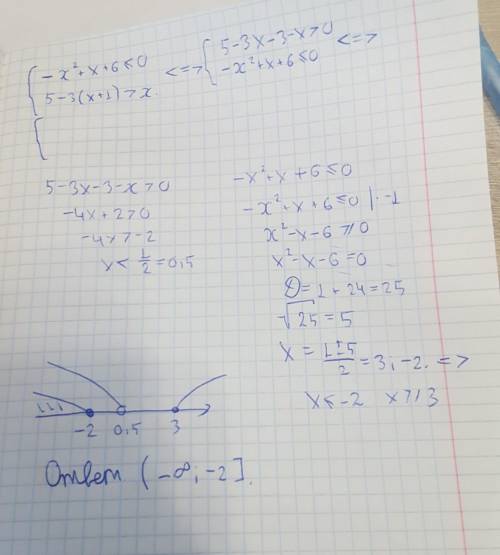 { -x²+x+6≤0
5-3(x+1)>x. <=> { 5-3x-3-x>0
-x²+x+6≤0 <=>
{
5-3x-3-x>0
-4x+2>0
-4x>-2
x< 1/2 =0,5
-x²+x+6≤0
-x²+x+6≤0 |·-1
x²-x-6≥0
x²-x-6=0
D=1+24=25
√25=5
x = (1±5)/2 =3; -2. =>
x≤-2 x≥3
-2 0,5 3
Ответ (-∞; -2].